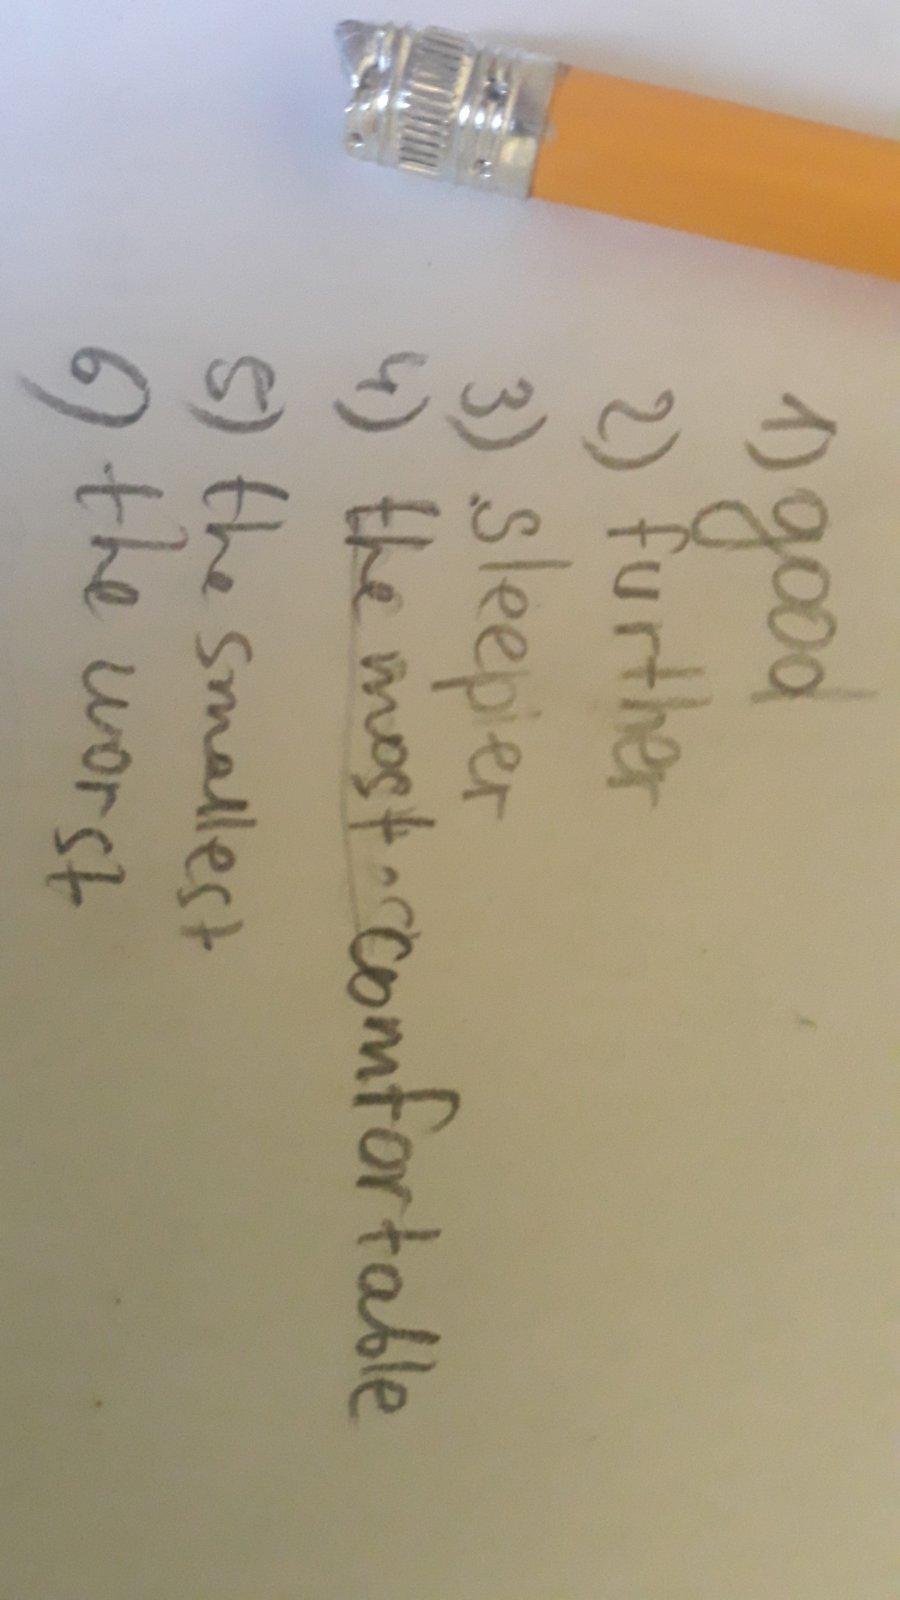 1) good
2) further
3) sleepier
4) the most comfortable
5) the smallest
6) the worst